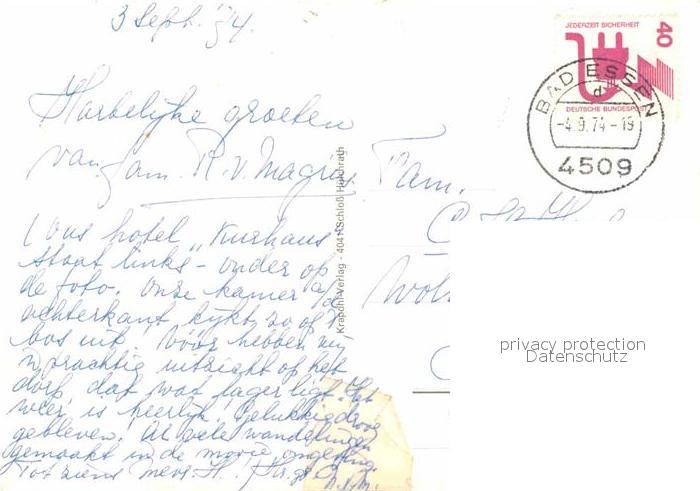 3 Sept. '74.
Hartelijke groeten
van fam. R. v. Magrijs
(Ons hotel „Kurhaus"
staat links-onder op
de foto. Onze kamer a/d
achterkant kijkt zo op 't
bos uit. Vóór hebben wij
'n prachtig uitzicht op het
dorp, dat wat lager ligt. Het
weer is heerlijk! Gelukkig droog
gebleven. Al vele wandelingen
gemaakt in de mooie omgeving.
Tot ziens mevr. H.! Hr. gr.
Krapohl-Verlag - 4041 Schloß Hülchrath
Fam.
JEDERZEIT SICHERHEIT
40
DEUTSCHE BUNDESPOST
BAD ESSEN
d
-4.9.74-19
4509
privacy protection
Datenschutz